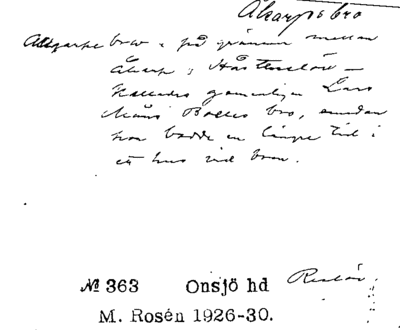 Åkarpsbro
bro : på gränsen mellan
Åkarp &
kallades gemenligen Lars
Måns Bolles bro, emedan
han bodde en längre tid i
ett hus vid bron.
№ 363 Onsjö hd
M. Rosén 1926-30.